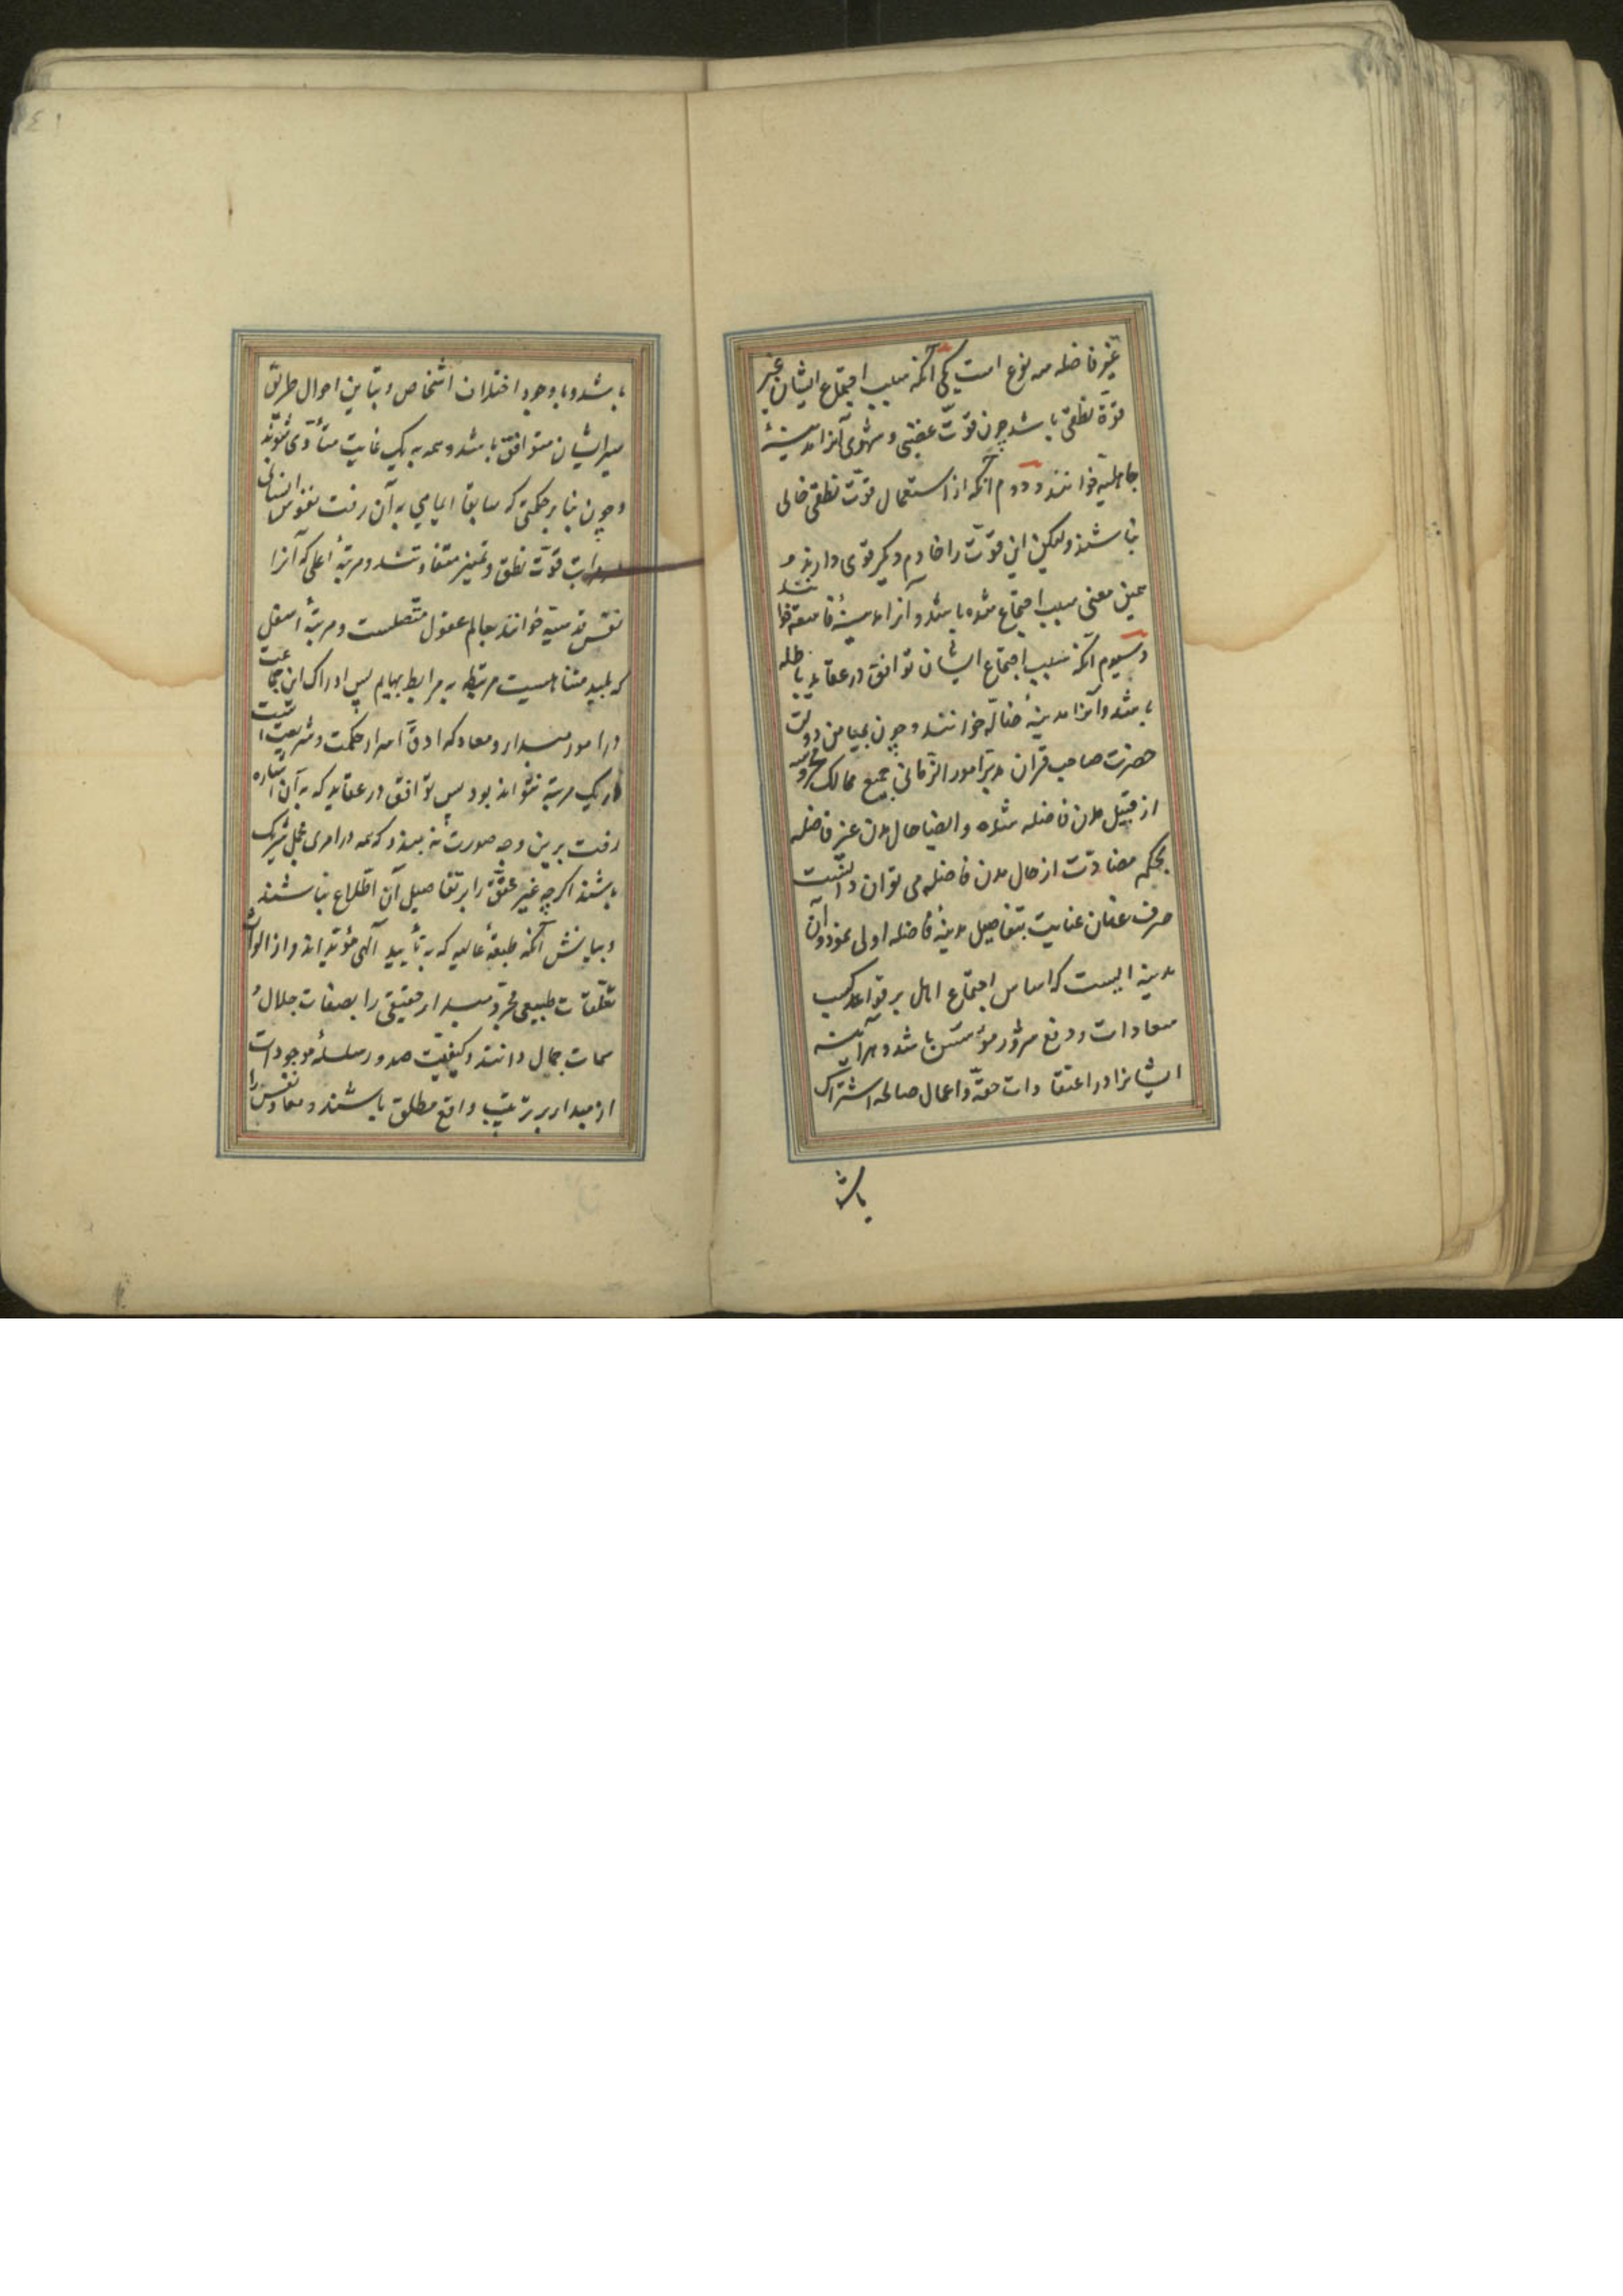 غیر فاضله سه نوع است یکی آنکه سبب اجتماع ایشان غیر
قوّة نطقی باشد چون قوّت غضبی و شهوی آنرا مدینهٔ
جاهلیّه خوانند و دوم آنکه از استعمال قوّت نطقی خالی
نباشند ولیکن این قوّت را خادم دیگر قوی دارند و
همین معنی سبب اجتماع شده باشد و آنرا مدینهٔ فاسقه خوانند
و سیوم آنکه سبب اجتماع ایشان توافق در عقاید باطله
باشد و آنرا مدینهٔ ضالّه خوانند و چون بمیامن دولت
حضرت صاحب قران مدبّر امور الزمانی جمیع ممالک محروسه
از قبیل مدن فاضله شده و ایضا حال مدن غیر فاضله
بحکم مضادّت از حال مدن فاضله می توان دانست
صرف عنان عنایت بتفاصیل مدینهٔ فاضله اولی نمود و آن
مدینه ایست که اساس اجتماع اهل بر قواعد کسب
سعادات و دفع شرور مؤسّس باشد و هرآینه
ایشانرا در اعتقادات حقّه و اعمال صالحه اشتراک
باشد
باشد و با وجود اختلاف اشخاص و تباین احوال طریق
سیر ایشان متوافق باشد و همه به یک غایت متأدّی شوند
و چون بنابر حکمتی که سابقا ایمایی به آن رفت نفوس انسانی
مراتب قوّت نطق و تمییز متفاوتند و مرتبهٔ اعلی که آنرا
نفس قدسیّه خوانند بعالم عقول متّصلست و مرتبهٔ اسفل
که بلید متناهیست مرتبط به مرابط بهایم پس ادراک این جماعت
در امور مبدا و معاد که ادقّ اسرار حکمت و شریعت است
در یک مرتبه نتواند بود پس توافق در عقاید که به آن اشاره
رفت برین وجه صورت نه بندد که همه در امری مجمل شریک
باشند اگرچه غیر محقّق را بر تفاصیل آن اطّلاع نباشند
و بیانش آنکه طبقهٔ عالیه که به تأیید الهی مؤیّد اند و از الواث
تعلّقات طبیعی مجرّد مبدا حقیقی را بصفات جلال و
سمات جمال دانند و کیفیّت صدور سلسلهٔ موجودات
از مبدا بر ترتیب واقع مطلق باشند و معاد نفس را